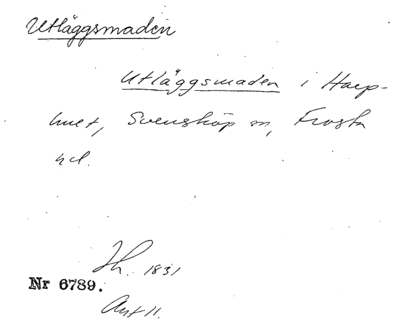 Utläggsmaden
Utläggsmaden i Harp-
huset, Svensköp sn, Frosta
hd.
Jh. 1831
Nr 6789.
Avt 11.